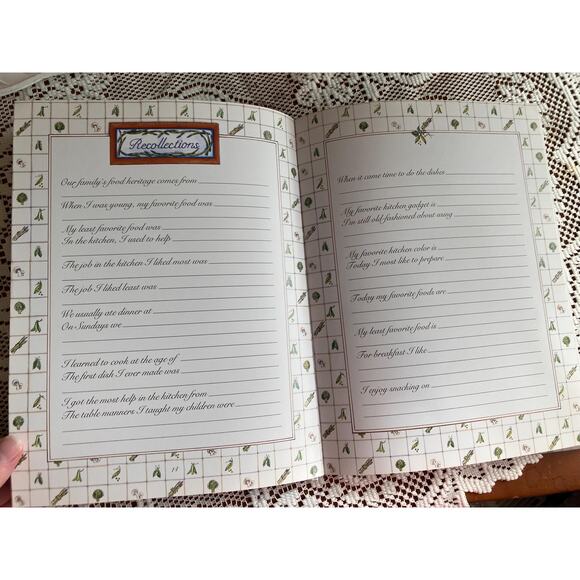 Recollections
Our family's food heritage comes from
When I was young, my favorite food was
My least favorite food was
In the kitchen, I used to help
The job in the kitchen I liked most was
The job I liked least was
We usually ate dinner at
On Sundays we
I learned to cook at the age of
The first dish I ever made was
I got the most help in the kitchen from
The table manners I taught my children were
11
When it came time to do the dishes
My favorite kitchen gadget is
I'm still old-fashioned about using
My favorite kitchen color is
Today I most like to prepare
Today my favorite foods are
My least favorite food is
For breakfast I like
I enjoy snacking on